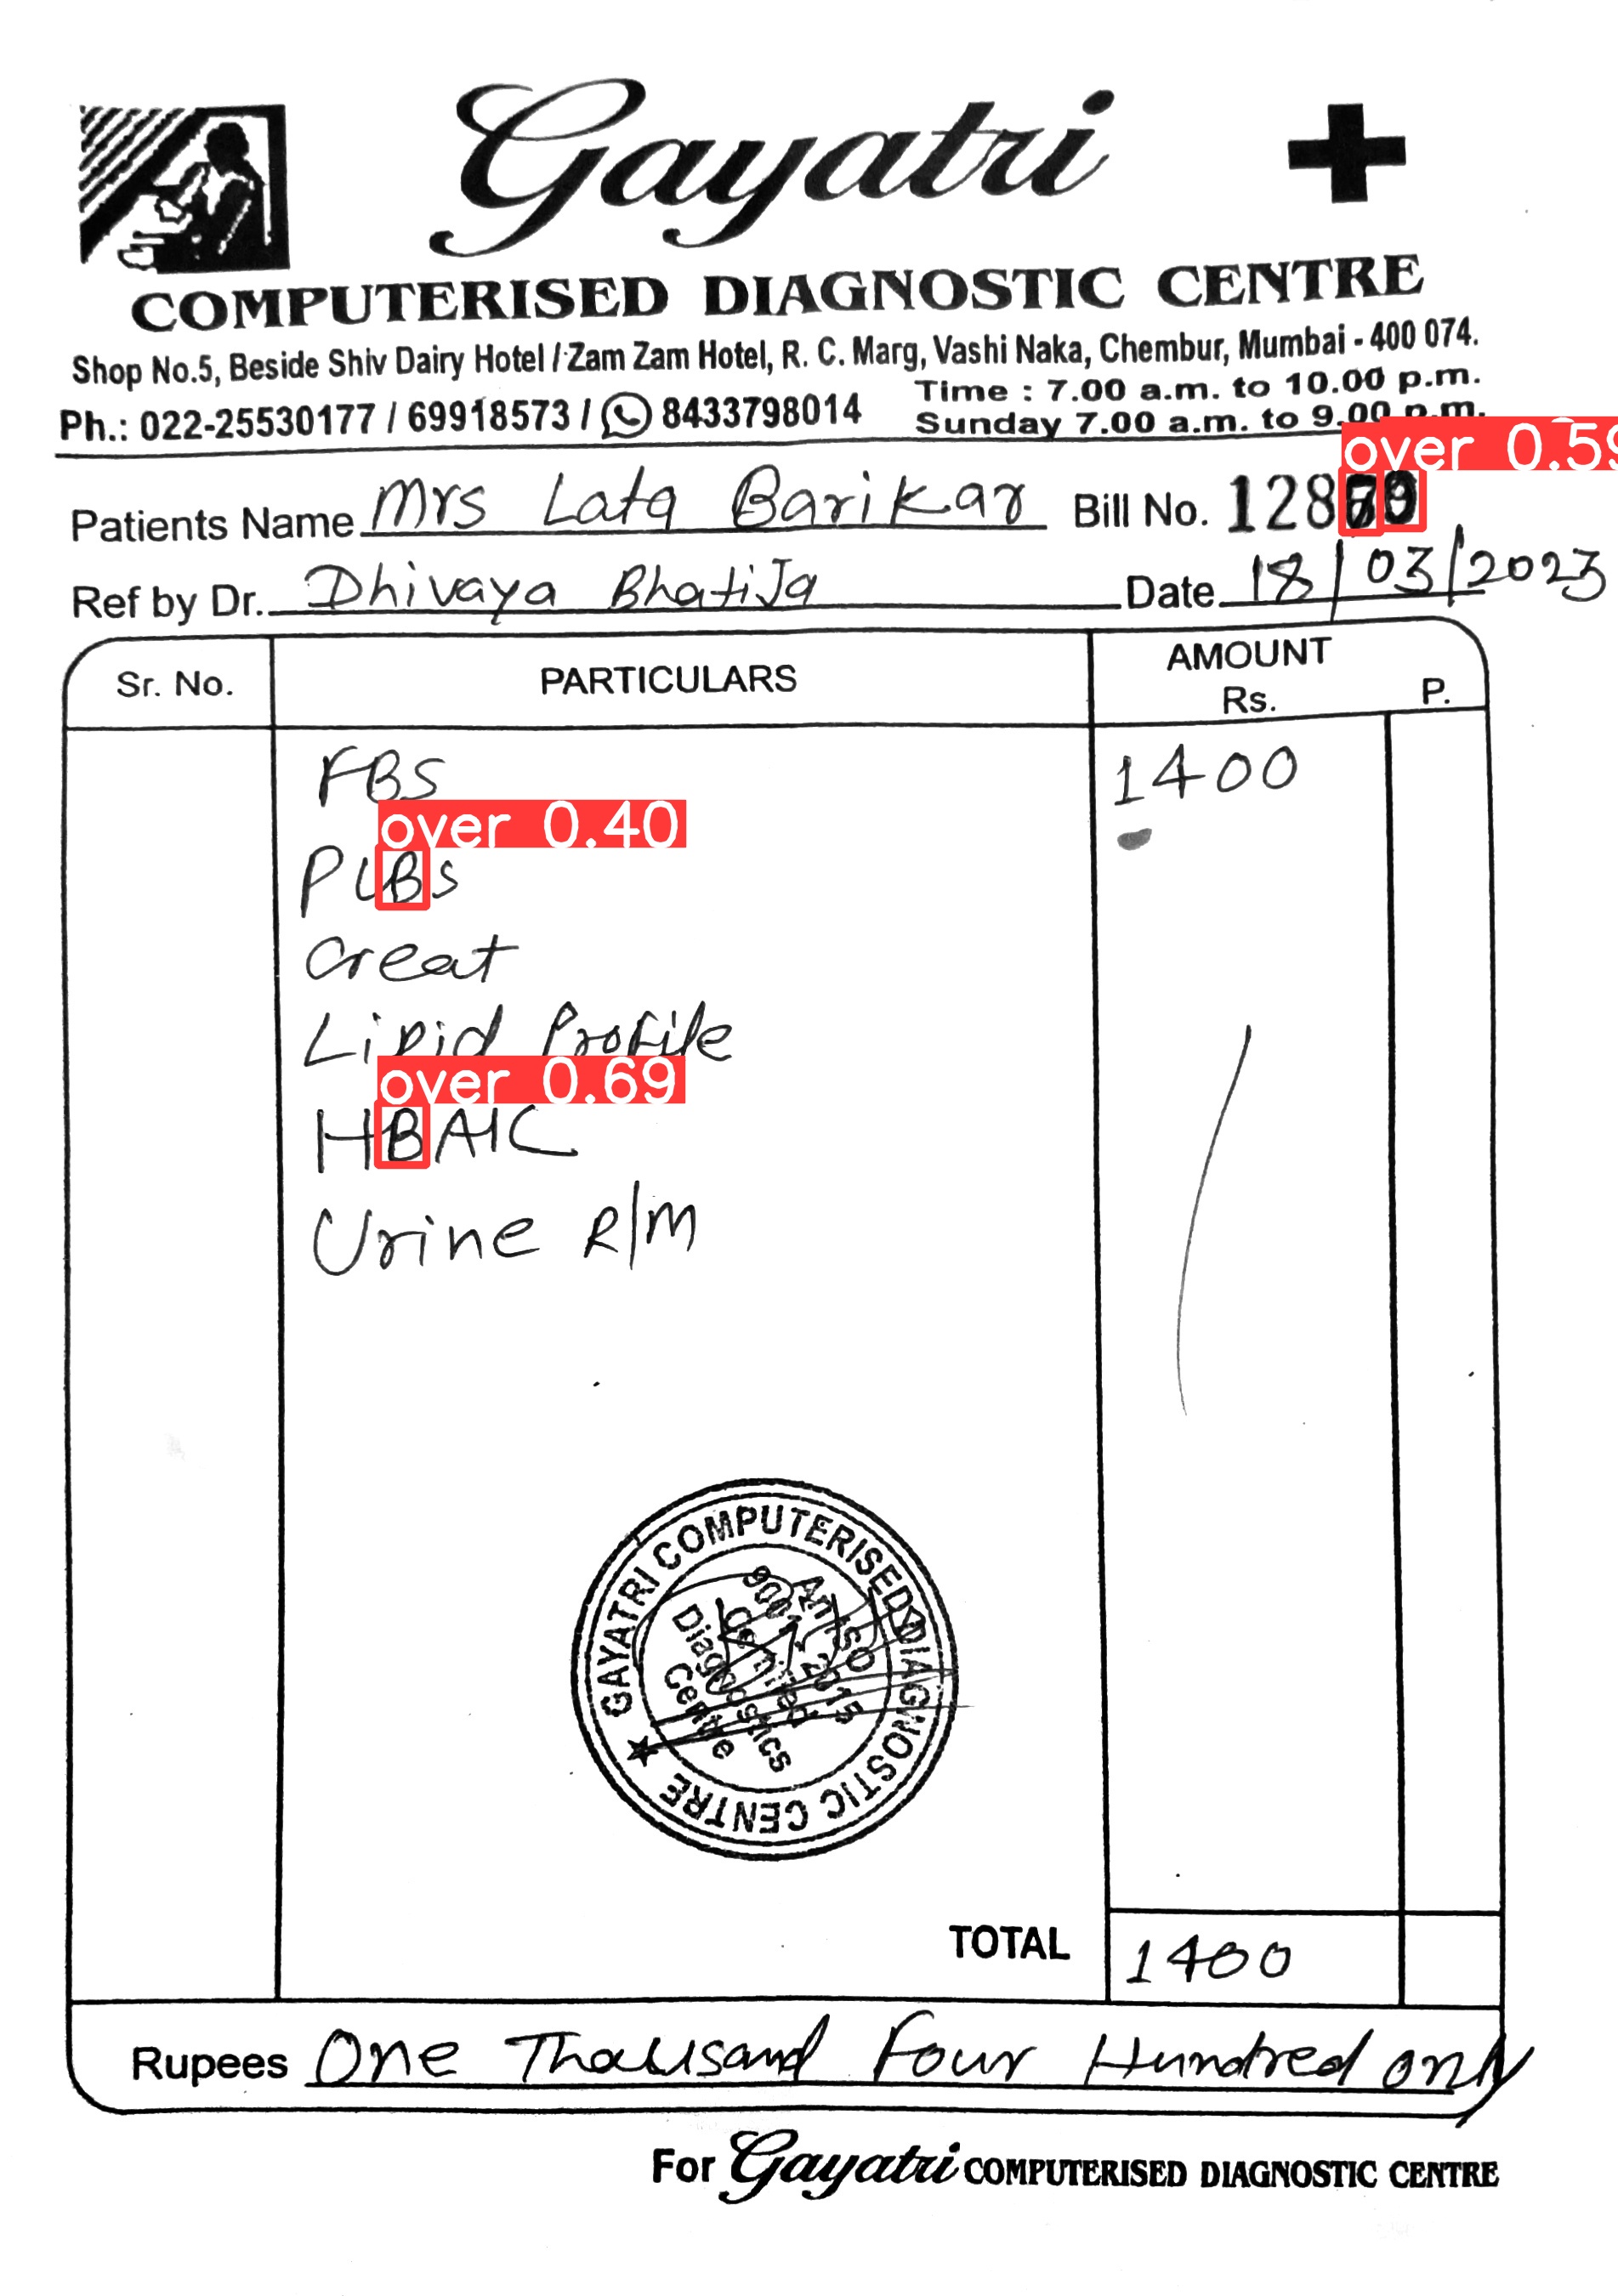 Gayatri
COMPUTERISED DIAGNOSTIC CENTRE
Shop No.5, Beside Shiv Dairy Hotel / Zam Zam Hotel, R. C. Marg, Vashi Naka, Chembur, Mumbai - 400 074.
Time : 7.00 a.m. to 10.00 p.m.
Ph.: 022-25530177 / 69918573 / 8433798014
Sunday 7.00 a.m. to 9.00 p.m.
over 0.59
Patients Name Mrs Lata Barikar Bill No.
Ref by Dr. Dhivaya Bhatija Date 18/03/2023
Sr. No. PARTICULARS AMOUNT Rs. P.
FBS 1400
over 0.40
PLBS
Creat
Lipid Profile
over 0.69
HBAIC
Urine R/M
GAYATRI COMPUTERISED DIAGNOSTIC CENTRE
An ISO
9001:2015
Certified
Diagnostics
Centre
TOTAL 1400
Rupees One Thousand Four Hundred only
For Gayatri COMPUTERISED DIAGNOSTIC CENTRE